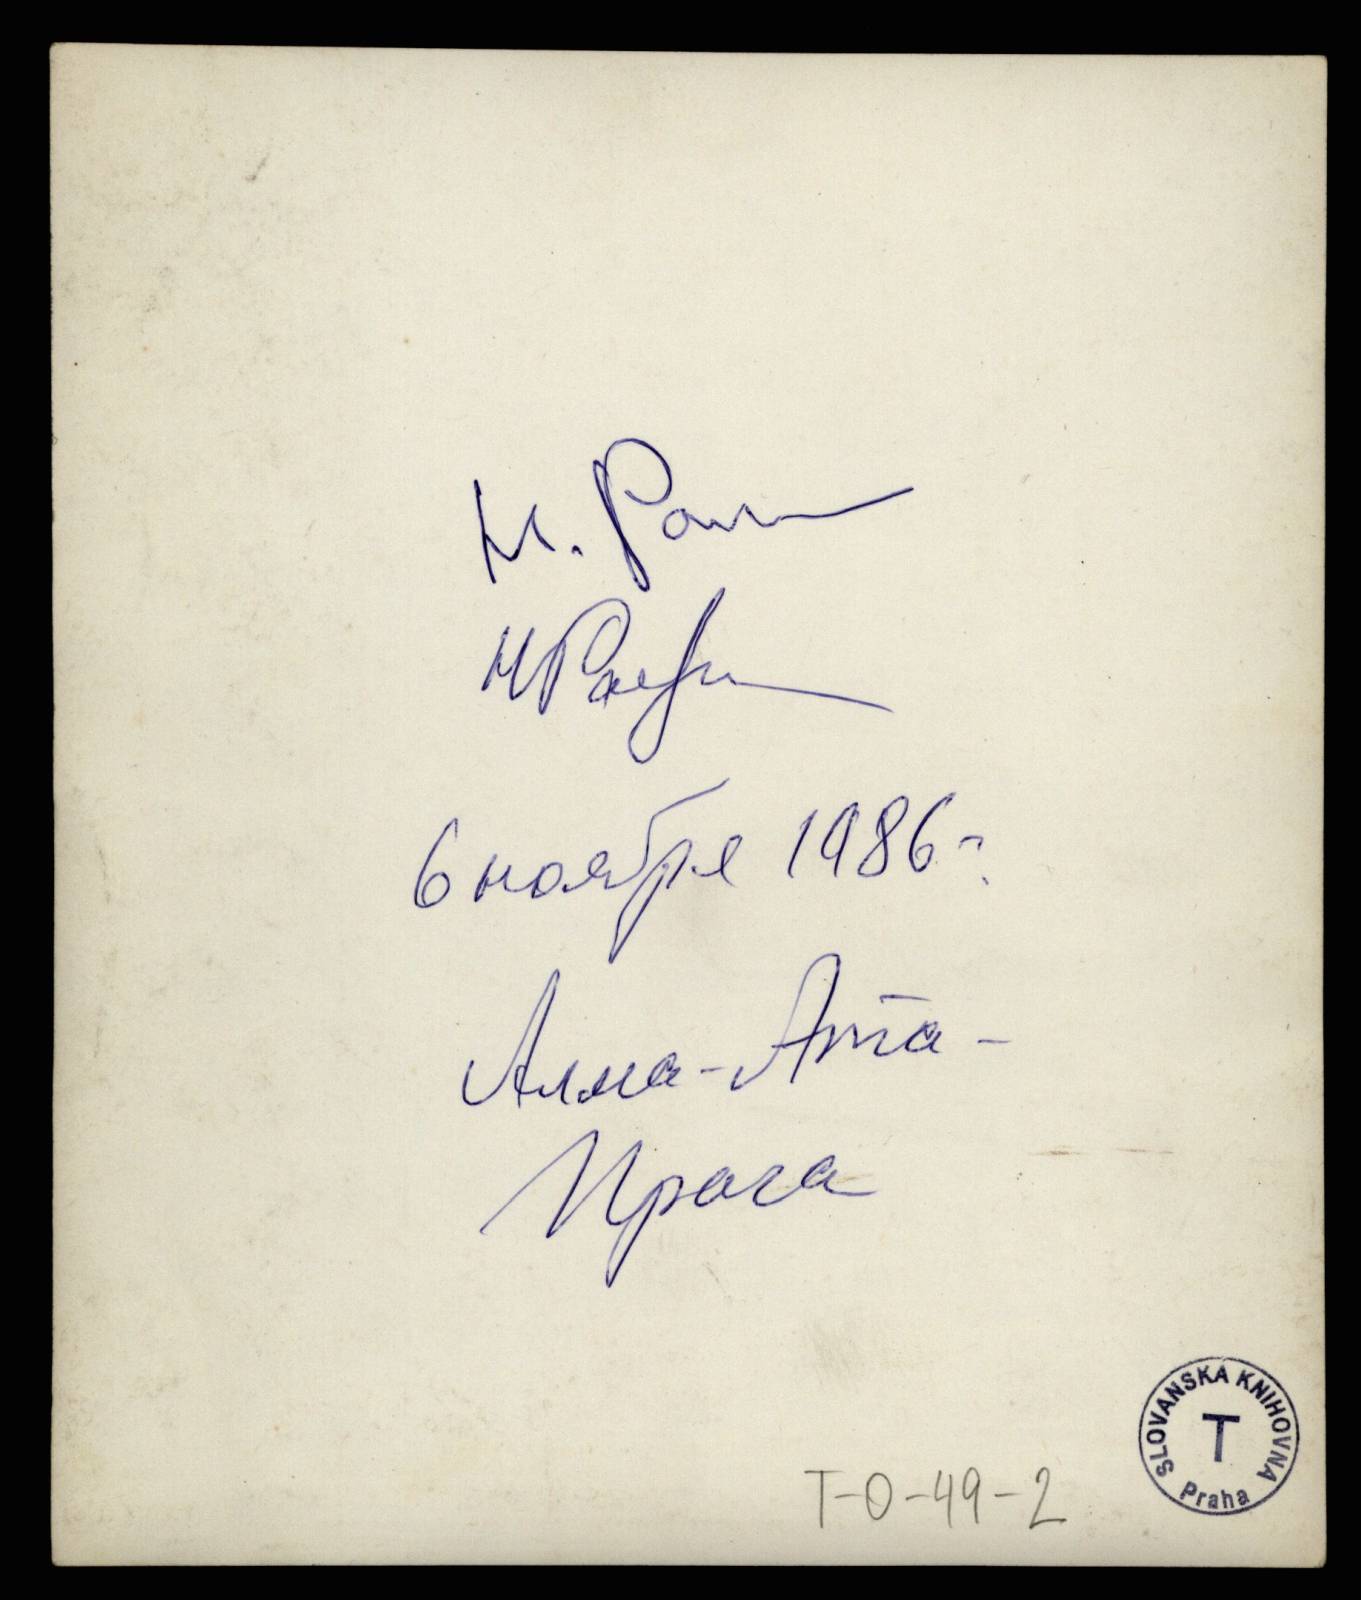 М. Ра
Н Раев
6 ноября 1986 г.
Алма-Ата -
Прага
T-0-49-2
SLOVANSKA KNIHOVNA
T
Praha